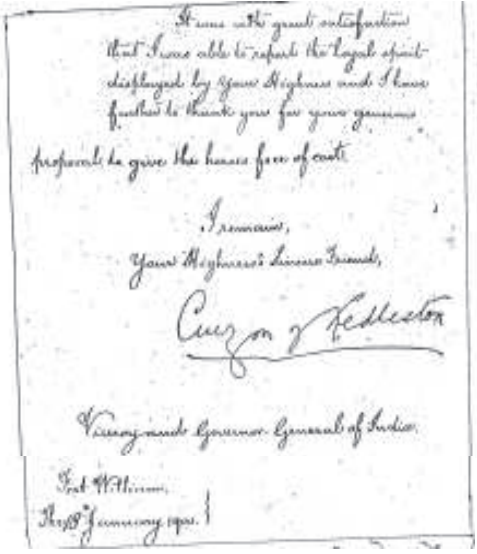 It was with great satisfaction
that I was able to report the loyal spirit
displayed by Your Highness and I have
further to thank you for your generous
proposal to give the horses free of cost.
I remain,
Your Highness's Sincere Friend,
Curzon of Kedleston
Viceroy and Governor General of India.
Fort William,
The January